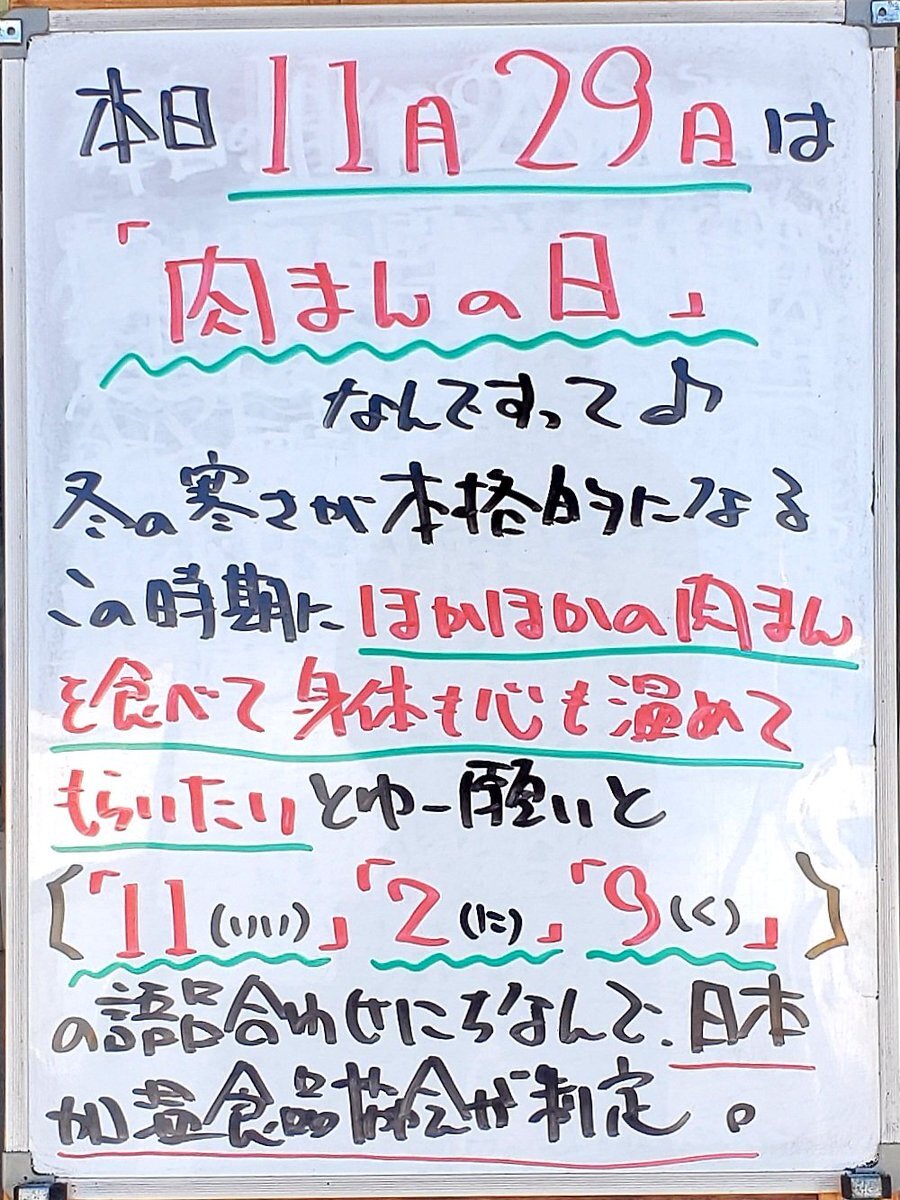 本日11月29日は
「肉まんの日」
なんですって♪
冬の寒さが本格的になる
この時期にほかほかの肉まん
を食べて身体も心も温めて
もらいたいとゆー願いと
{「11(いい)」「2(に)」「9(く)」}
の語呂合わせにちなんで、日本
加温食品協会が制定。